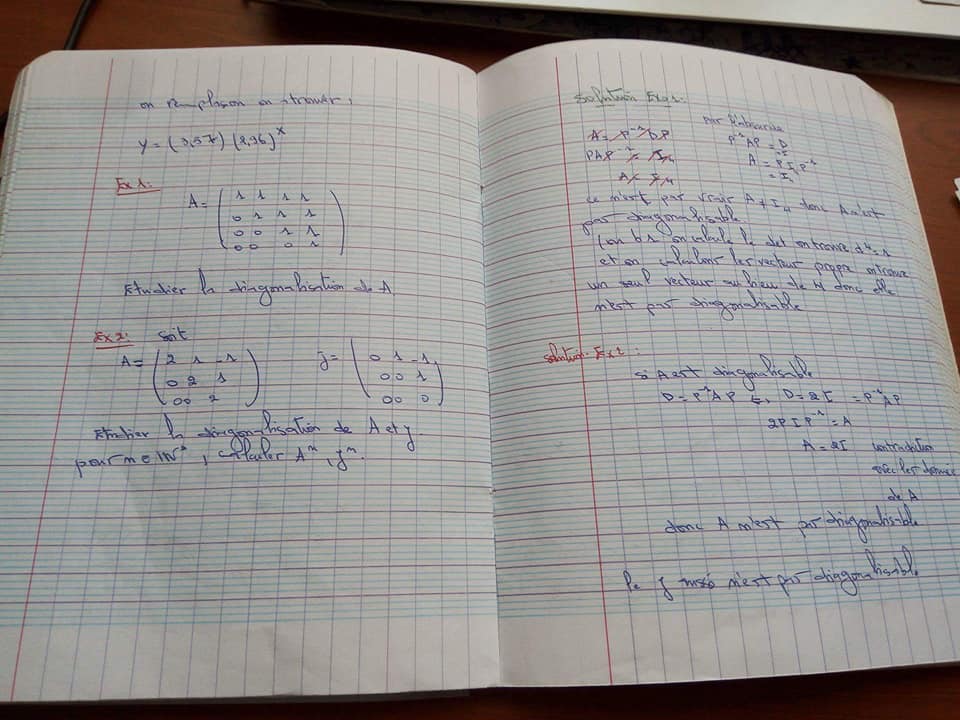 on remplaçon on trouver,
y = (3,57) (2,96)^x
Ex 1:
A = ( 1 1 1 1
0 1 1 1
0 0 1 1
0 0 0 1 )
Etudier la diagonalisation de A.
Ex 2: soit
A = ( 2 1 -1
0 2 1
0 0 2 )
J = ( 0 1 -1
0 0 1
0 0 0 )
Etudier la diagonalisation de A et J.
pour n ∈ IN*, calculer A^n, J^n.
Solution Ex 1:
par l'absurde
A = P^-1 D P
P^-1 A P = D
P A P^-1 = I4
= I
A = P I4 P^-1
A = I4
= I4
ce n'est pas vrais A ≠ I4 donc A n'est
pas diagonalisable.
on calcule le det on trouve
et on calculons les vecteur propre on trouve
un seul vecteur au lieu de 4 donc elle
n'est pas diagonalisable
solution Ex 2:
si A est diagonalisable
D = P^-1 A P D = 2I = P^-1 A P
2 P I P^-1 = A
A = 2I contradiction
avec les donnée
de A
donc A n'est pas diagonalisable
le J n'est pas diagonalisable.